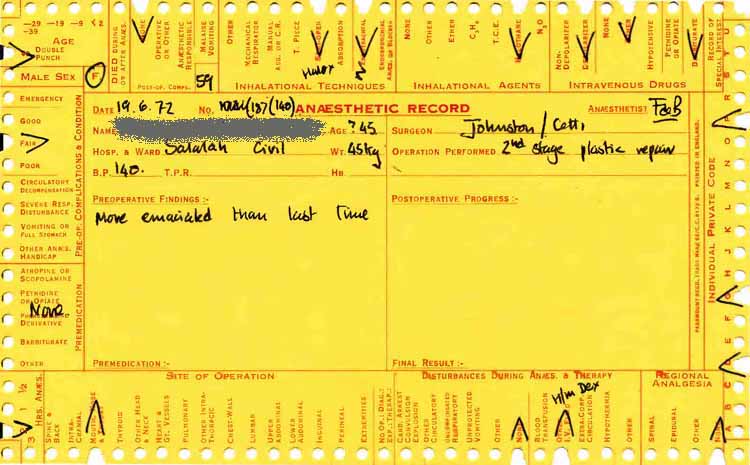 –29 –19 –9 <2
–39
AGE
DOUBLE
PUNCH
MALE SEX F
DIED DURING
OR AFTER ANÆS.
NONE
OPERATIVE
OR OTHER
ANÆSTHETIC
RESPONSIBLE
MALAISE
VOMITING
POST-OP. COMPL.
59
OTHER
MECHANICAL
RESPIRATOR
T. PIECE
Halox
ABSORPTION
INHALATIONAL TECHNIQUES
NONE
OTHER
ETHER
C₃H₆
T.C.E.
HALOTHANE
N₂O
INHALATIONAL AGENTS
NON-
DEPOLARIZER
DEPOLARIZER
OTHER
NONE
HYPOTENSIVE
PETHIDINE
OR OPIATE
INTRAVENOUS DRUGS
RECORD OF
SPECIAL INTEREST
DATE 19.6.72 NO. ANÆSTHETIC RECORD ANÆSTHETIST
NAME AGE ?45 SURGEON Johnston/
HOSP. & WARD Salalah Civil WT. 45kg OPERATION PERFORMED 2nd stage plastic repair
B.P. 140. T.P.R. HB
PREOPERATIVE FINDINGS :- POSTOPERATIVE PROGRESS :-
More emaciated than last time
PREMEDICATION :- FINAL RESULT :-
EMERGENCY
GOOD
FAIR
POOR
CIRCULATORY
DECOMPENSATION
SEVERE RESP.
DISTURBANCE
VOMITING OR
FULL STOMACH
OTHER ANÆS.
HANDICAP
PRE-OP. COMPLICATIONS & CONDITION
ATROPINE OR
SCOPOLAMINE
PETHIDINE
OR OPIATE
None
DERIVATIVE
BARBITURATE
OTHER
PREMEDICATION
PRINTED IN ENGLAND.
INDIVIDUAL PRIVATE CODE
SITE OF OPERATION
DISTURBANCES DURING ANÆS. & THERAPY
REGIONAL
ANALGESIA
3 1 ½
HRS. ANÆS.
SPINE &
BACK
INTRA-
CRANIAL
THYROID
OTHER HEAD
& NECK
HEART &
GT. VESSELS
PULMONARY
OTHER INTRA-
THORACIC
CHEST-WALL
LUMBAR
UPPER
ABDOMINAL
LOWER
ABDOMINAL
INGUINAL
PERINEAL
EXTREMITIES
NO OP. DIAG.
EXP. THERAP.
CARD. ARREST
CONVULSION
EXPLOSION
OTHER
CIRCULATORY
UNPROTECTED
VOMITING
OTHER
NONE
BLOOD
TRANSFUSION
H/m Dex
EXTRA-CORP.
CIRCULATION
HYPOTHERMIA
OTHER
SPINAL
EPIDURAL
OTHER